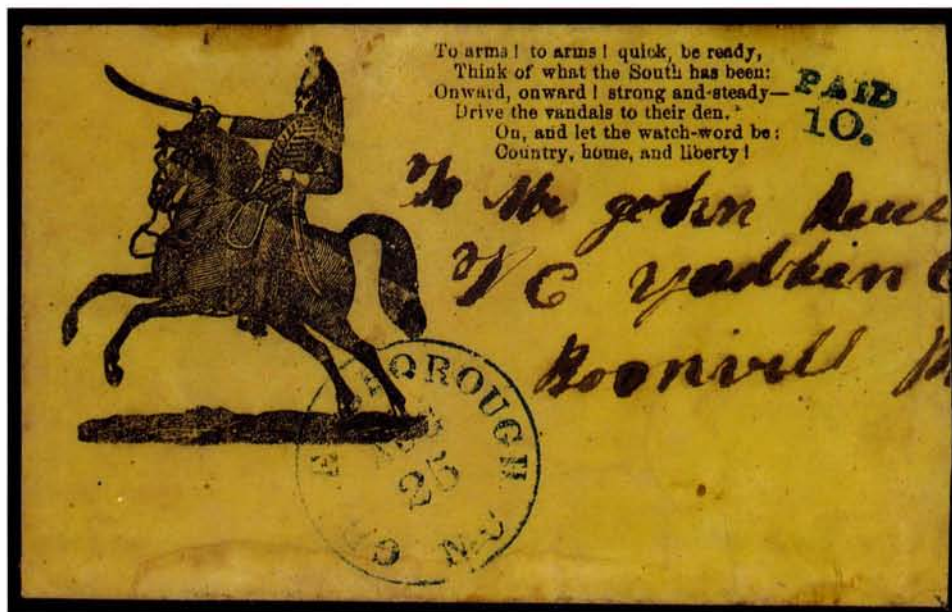 To arms! to arms! quick, be ready,
Think of what the South has been:
Onward, onward! strong and steady—
Drive the vandals to their den.
On, and let the watch-word be:
Country, home, and liberty!
PAID
10.
To Mr John
N C Yadkin C
Boonvill
25
N.C.